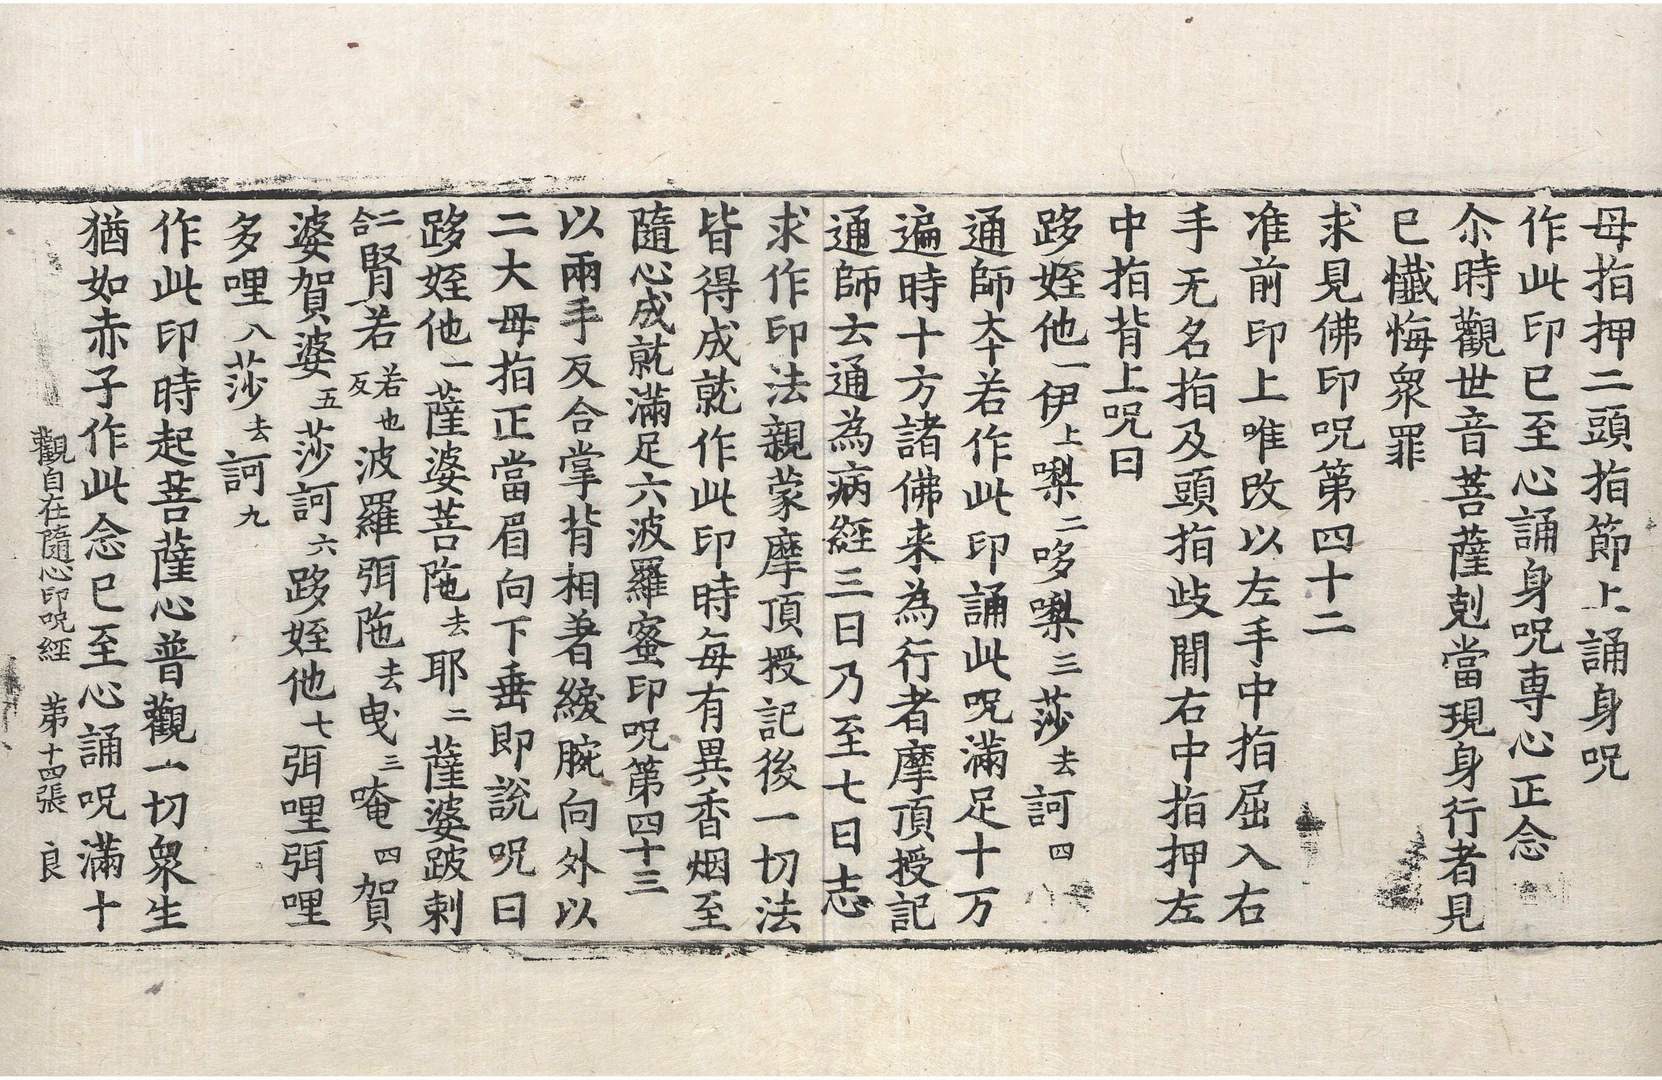 母指押二頭指節上誦身呪
作此印已至心誦身呪專心正念
尒時觀世音菩薩剋當現身行者見
已懺悔衆罪
求見佛印呪第四十二
准前印上唯改以左手中指屈入右
手无名指及頭指歧間右中指押左
中指背上呪曰
跢姪他一伊上㗚二哆㗚三莎去訶四
通師夲若作此印誦此呪滿足十万
遍時十方諸佛来為行者摩頂授記
通師去通為病經三日乃至七日志
求作印法親蒙摩頂授記後一切法
皆得成就作此印時每有異香烟至
隨心成就滿足六波羅蜜印呪第四十三
以兩手反合掌背相著綾腕向外以
二大母指正當眉向下垂即說呪曰
跢姪他一薩婆菩陁去耶二薩婆跛剌
二合腎若若也反波羅弭陁去曳三唵四賀
婆賀婆五莎訶六跢姪他七弭哩弭哩
多哩八莎去訶九
作此印時起菩薩心普觀一切衆生
猶如赤子作此念已至心誦呪滿十
觀自在隨心印呪経 第十四張 良